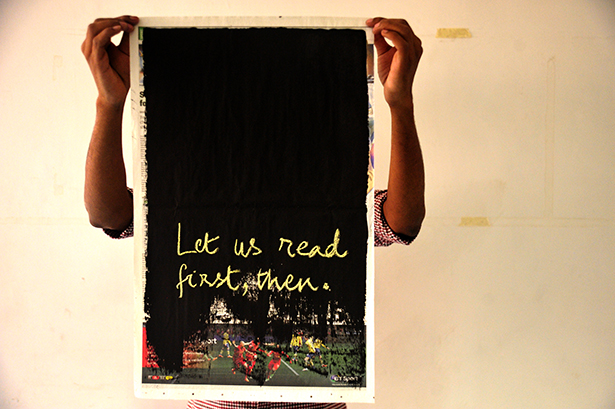 Let us read
first, then.